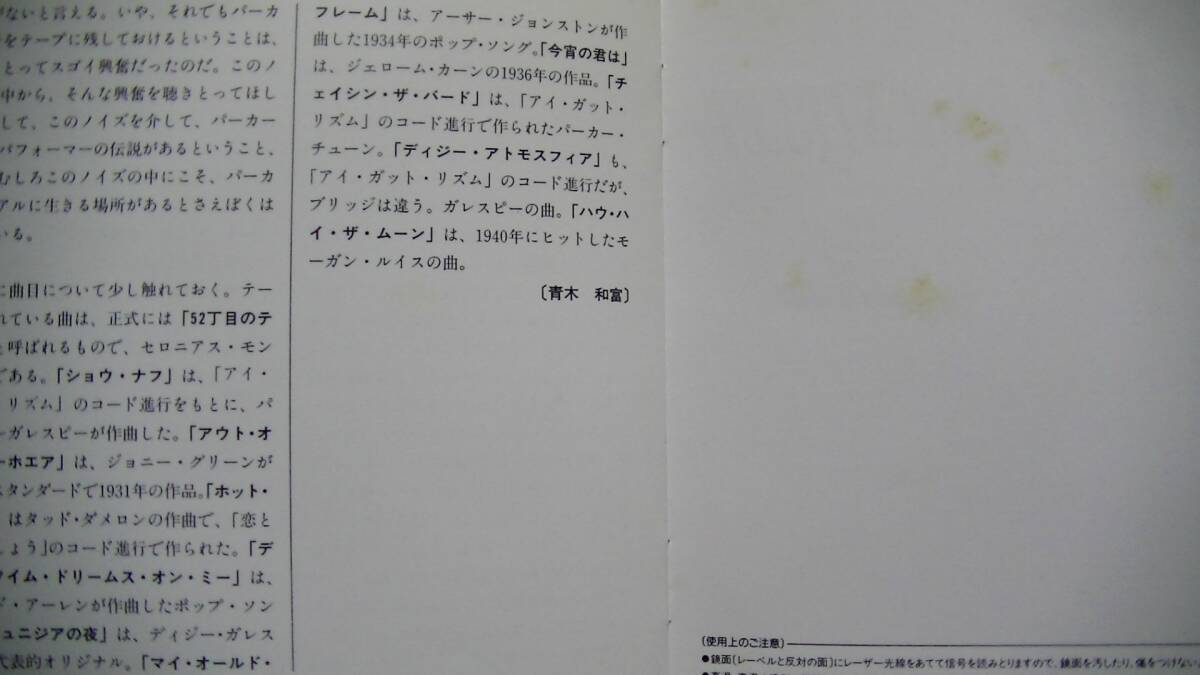 がないと言える。いや、それでもパーカ
をテープに残しておけるということは、
とってスゴイ興奮だったのだ。このノ
中から、そんな興奮を聴きとってほし
して、このノイズを介して、パーカー
パフォーマーの伝説があるということ、
むしろこのノイズの中にこそ、パーカ
アルに生きる場所があるとさえぼくは
いる。
に曲目について少し触れておく。テー
れている曲は、正式には「52丁目のテ
と呼ばれるもので、セロニアス・モン
である。「ショウ・ナフ」は、「アイ・
リズム」のコード進行をもとに、パ
ーガレスピーが作曲した。「アウト・オ
ーホエア」は、ジョニー・グリーンが
スタンダードで1931年の作品。「ホット・
はタッド・ダメロンの作曲で、「恋と
しょう」のコード進行で作られた。「デ
イム・ドリームス・オン・ミー」は、
ド・アーレンが作曲したポップ・ソン
ュニジアの夜」は、ディジー・ガレス
代表的オリジナル。「マイ・オールド・
フレーム」は、アーサー・ジョンストンが作
曲した1934年のポップ・ソング。「今宵の君は」
は、ジェローム・カーンの1936年の作品。「チ
ェイシン・ザ・バード」は、「アイ・ガット・
リズム」のコード進行で作られたパーカー・
チューン。「ディジー・アトモスフィア」も、
「アイ・ガット・リズム」のコード進行だが、
ブリッジは違う。ガレスピーの曲。「ハウ・ハ
イ・ザ・ムーン」は、1940年にヒットしたモ
ーガン・ルイスの曲。
〔青木 和富〕
〔使用上のご注意〕
●鏡面〔レーベルと反対の面〕にレーザー光線をあてて信号を読みとりますので、鏡面を汚したり、傷をつけない